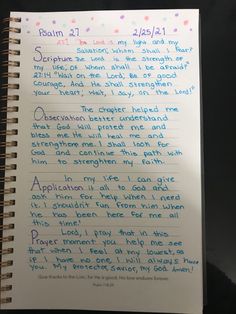 Psalm 27 2/25/21
27:1 "The Lord is my light and my
Salvation; whom shall I fear?
Scripture The Lord is the strength of
my life; of whom shall I be afraid?"
27:14 "Wait on the Lord; Be of good
courage, And He shall strengthen
your heart; Wait, I say, on the Lord!"
The chapter helped me
Observation better understand
that God will protect me and
bless me. He will hear me and
strengthen me. I shall look for
God and continue this path with
him to strengthen my faith.
In my life I can give
Application it all to God and
ask him for help when I need
it. I shouldn't run from him when
he has been here for me all
this time!
Lord, I pray that in this
Prayer moment you help me see
that when I feel at my lowest, as
if I have no one I will always have
you. My protector, savior, my God. Amen!
Give thanks to the Lord, for he is good; his love endures forever.